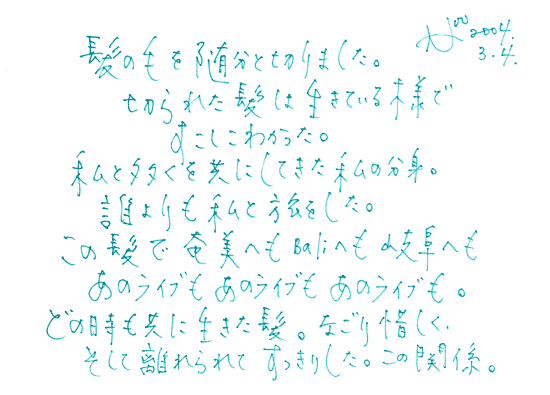 2004.
3.4.
髪の毛を随分と切りました。
切られた髪は生きている様で
すこしこわかった。
私と多くを共にしてきた私の分身。
誰よりも私と旅をした。
この髪で奄美へもBaliへも岐阜へも
あのライブもあのライブもあのライブも。
どの時も共に生きた髪。なごり惜しく、
そして離れられてすっきりした。この関係。